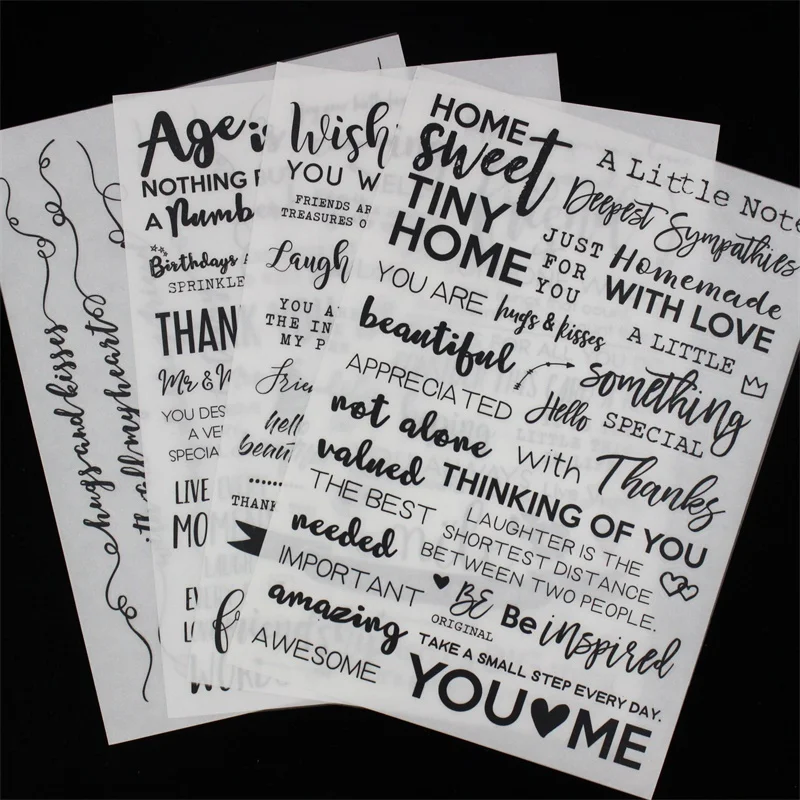 hugs and kisses
with all my heart
Age is
NOTHING
A Numb
Birthdays
SPRINKLE
THAN
Mr & M
YOU DES
A VE
SPECIAL
LIVE
MO
Wish
YOU W
FRIENDS AR
TREASURES O
Laugh
YOU A
THE IN
MY P
Frie
hell
beau
THANK
HOME
sweet
TINY
HOME
A Little Note
Deepest Sympathies
JUST
FOR
YOU
Homemade
WITH LOVE
YOU ARE
hugs & kisses
A LITTLE
beautiful
something
APPRECIATED
Hello
SPECIAL
not alone
with
Thanks
valued
THINKING OF YOU
THE BEST
LAUGHTER IS THE
SHORTEST DISTANCE
BETWEEN TWO PEOPLE.
needed
IMPORTANT
BE
ORIGINAL
Be inspired
amazing
TAKE A SMALL STEP EVERY DAY.
AWESOME
YOU♥ME